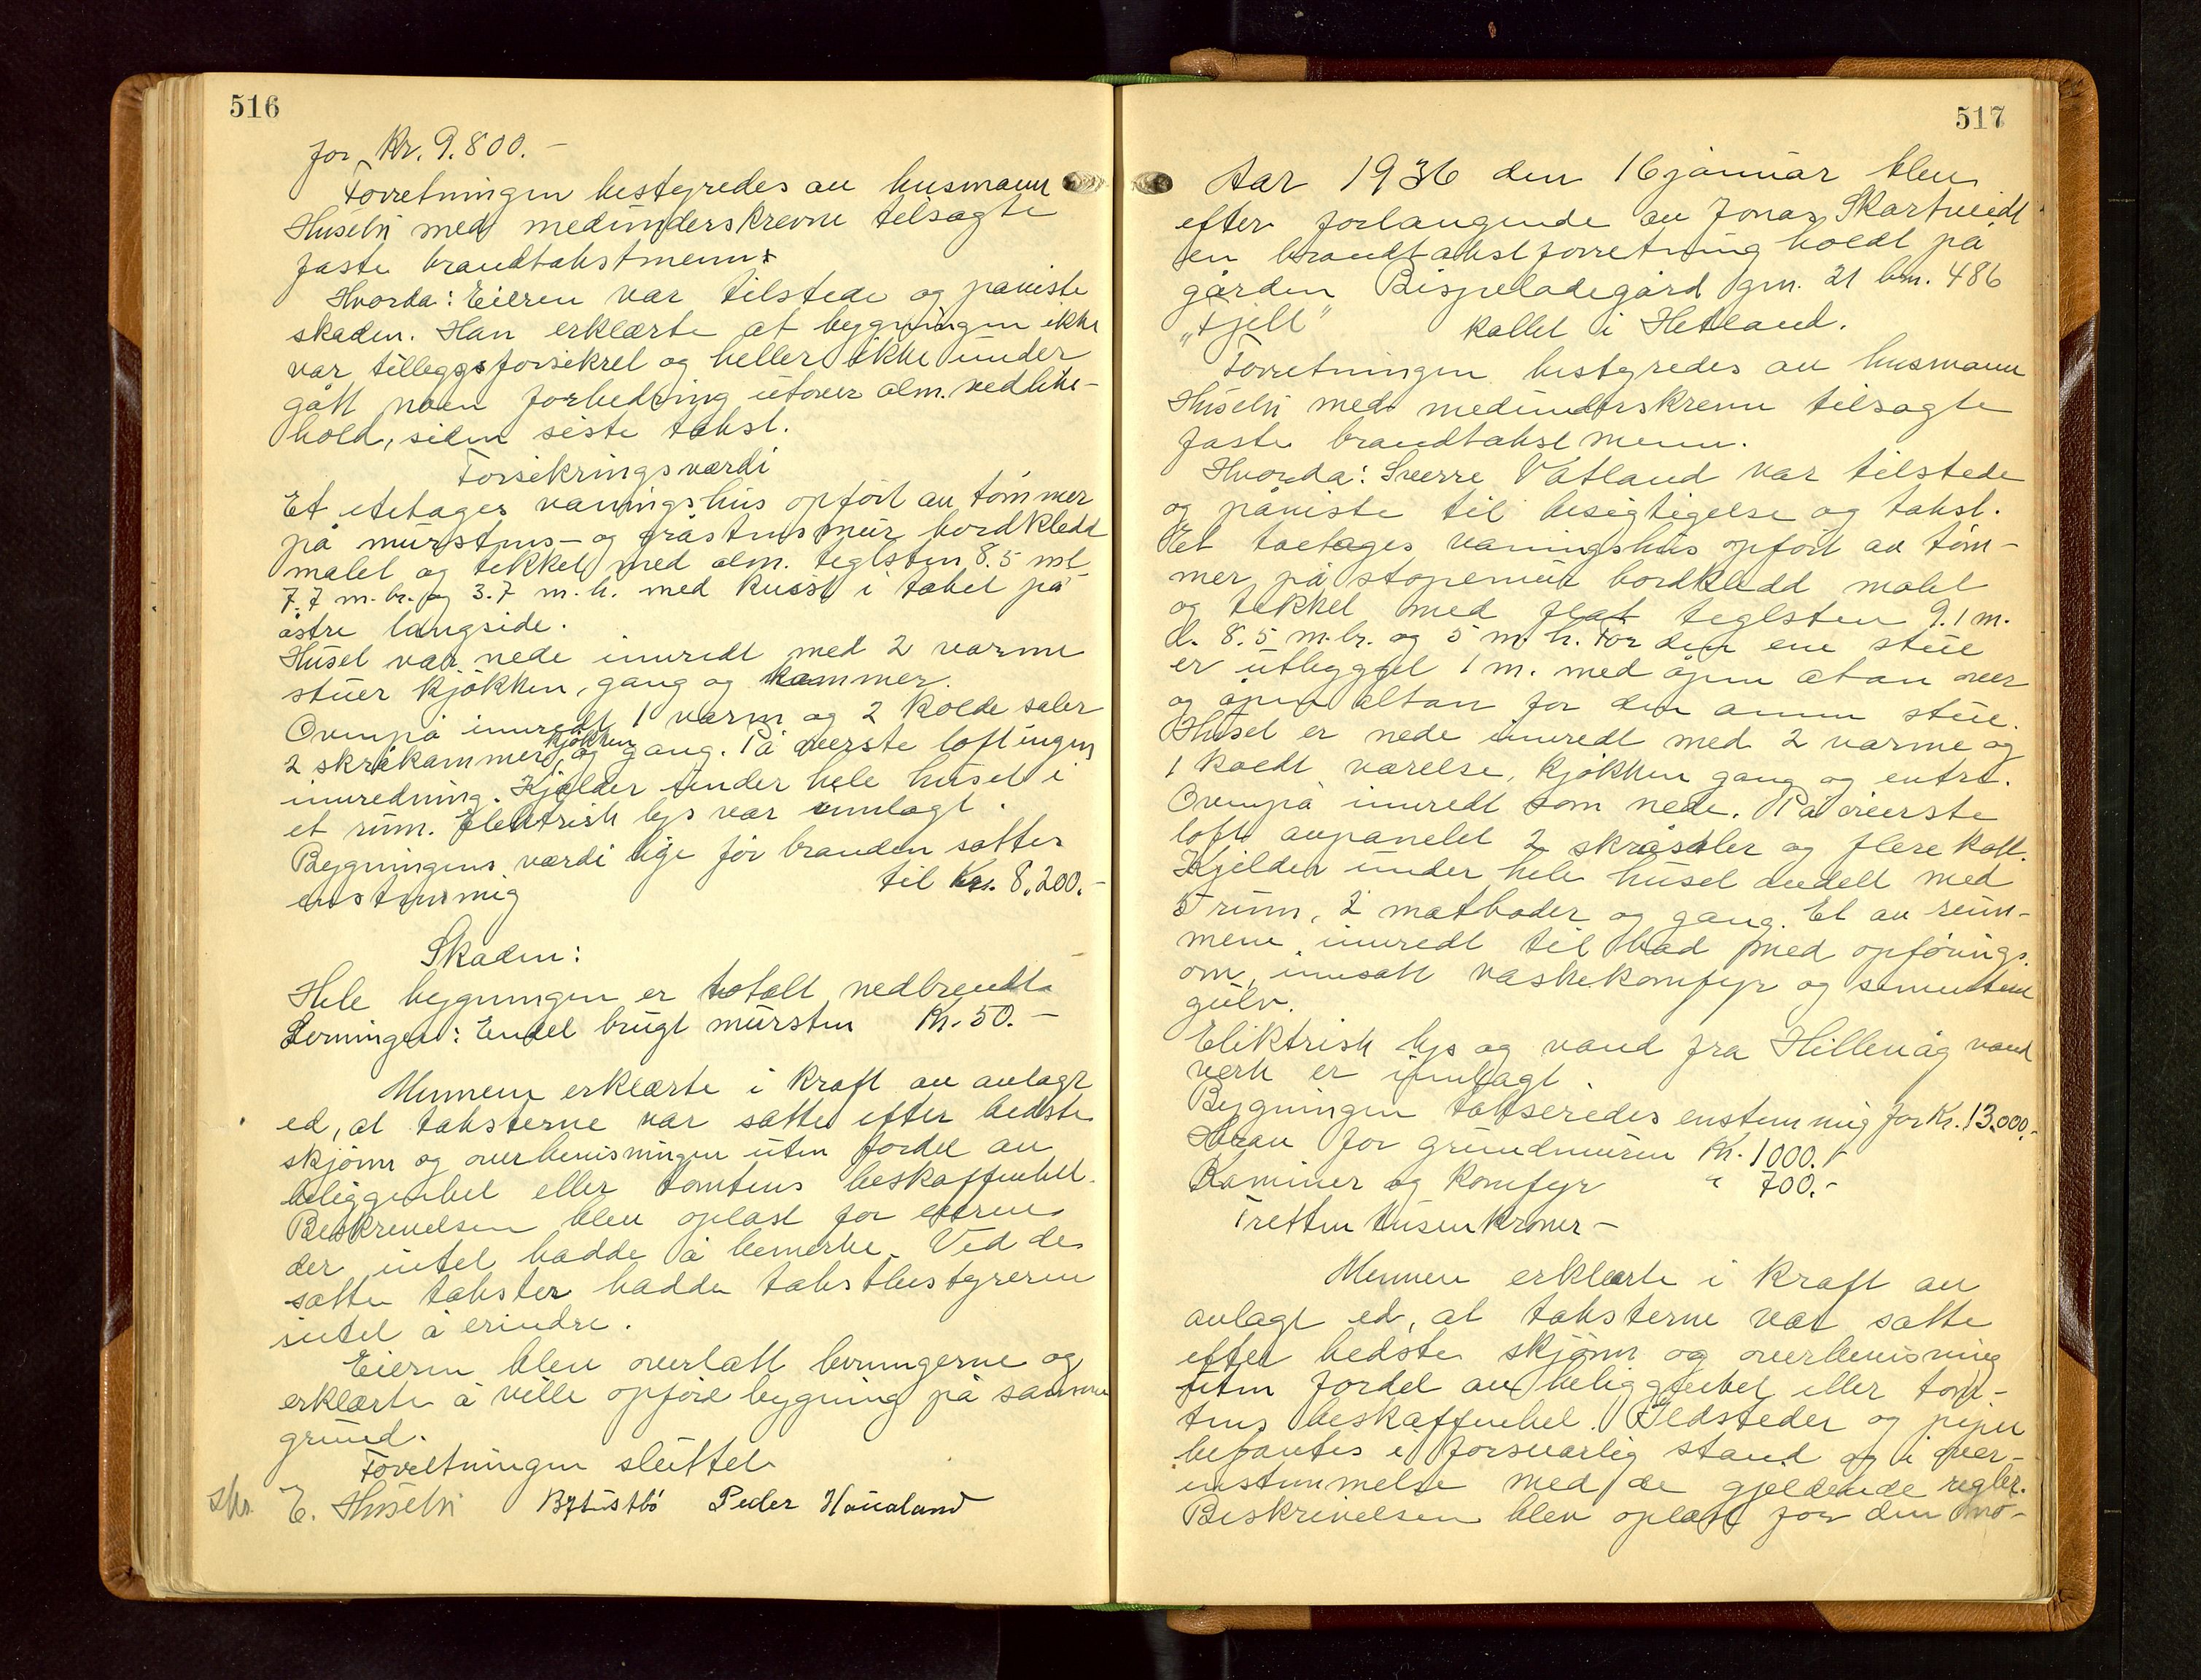 516
for Kr. 9.800.-
Forretningen bestyredes av husmann
Husebø med medunderskrevne tilsagte
faste brandtakstmenn.
Hvorda: Eieren var tilstede og påviste
skaden. Han erklærte at bygningen ikke
var tilleggsforsikret og heller ikke under
gått noen forbedring utover alm. vedlike-
hold, siden siste takst.
Forsikringsværdi
Et etetages våningshus opført av tømmer
på murstens- og gråstensmur bordkledd
malet og tekket med alm. teglsten 8.5 m l
7.7 m. br. og 3.7 m. h. med kvist i taket på
østre langside.
Huset var nede innredt med 2 varme
stuer kjøkken, gang og kammer.
Ovenpå innredt 1 varm og 2 kolde saler
2 skråkammere, kjøkken og gang. På øverste loft ingen
innredning. Kjelder under hele huset i
et rum. Elektrisk lys var innlagt.
Bygningens værdi lige før branden sattes
enstemmig til Kr. 8.200.-
Skaden:
Hele bygningen er totalt nedbrendt. -
Levningen: Endel brugt mursten Kr. 50. -
Mennene erklærte i kraft av avlagt
ed, at taksterne var satte efter bedste
skjønn og overbevisningen uten fordel av
beliggenhet eller tomtens beskaffenhet.
Beskrivelsen blev oplæst for eieren
der intet hadde å bemerke. Ved de
satte takster hadde takstbestyreren
intet å erindre.
Eieren blev overlatt levningerne og
erklærte å ville opføre bygning på samme
grund.
Forretningen sluttet.
skr. E. Husebø B Tustbø Peder Haualand
517
Aar 1936 den 16 januar blev
efter forlangende av Jonas Skartveidt
en brandtakstforretning holdt på
gården Bispeladegård gnr. 21 bnr. 486
"Fjell" kallet i Hetland.
Forretningen bestyredes av husmann
Husebø med medunderskrevne tilsagte
faste brandtakstmenn.
Hvorda: Sverre Vatland var tilstede
og påviste til besigtigelse og takst.
Et toetages våningshus opført av tøm-
mer på støpemur bordkledd malet
og tekket med flat teglsten 9.1 m.
l. 8.5 m. br. og 5 m. h. For den ene stue
er utbygget 1 m. med åpen altan over
og åpen altan for den annen stue.
Huset er nede innredt med 2 varme og
1 koldt værelse, kjøkken gang og entre.
Ovenpå innredt som nede. På øverste
loft avpanelet 2 skråsaler og flere kott.
Kjelder under hele huset avdelt med
5 rum, 2 matboder og gang. Et av rum-
mene innredt til bad med opførings.
ovn, innsatt vaskekomfyr og sementert
gulv.
Elektrisk lys og vand fra Hillevåg vand
verk er innlagt.
Bygningen takseredes enstemmig for Kr. 13.000.-
Herav for grundmuren Kr. 1000.-
Kaminer og komfyr " 700.-
Tretten tusen kroner -
Mennene erklærte i kraft av
avlagt ed, at taksterne var satte
efter bedste skjønn og overbevisning
uten fordel av beliggenhet eller tom-
tens beskaffenhet. Ildsteder og piper
befantes i forsvarlig stand og i over-
enstemmelse med de gjeldende regler.
Beskrivelsen blev oplæst for den mø-